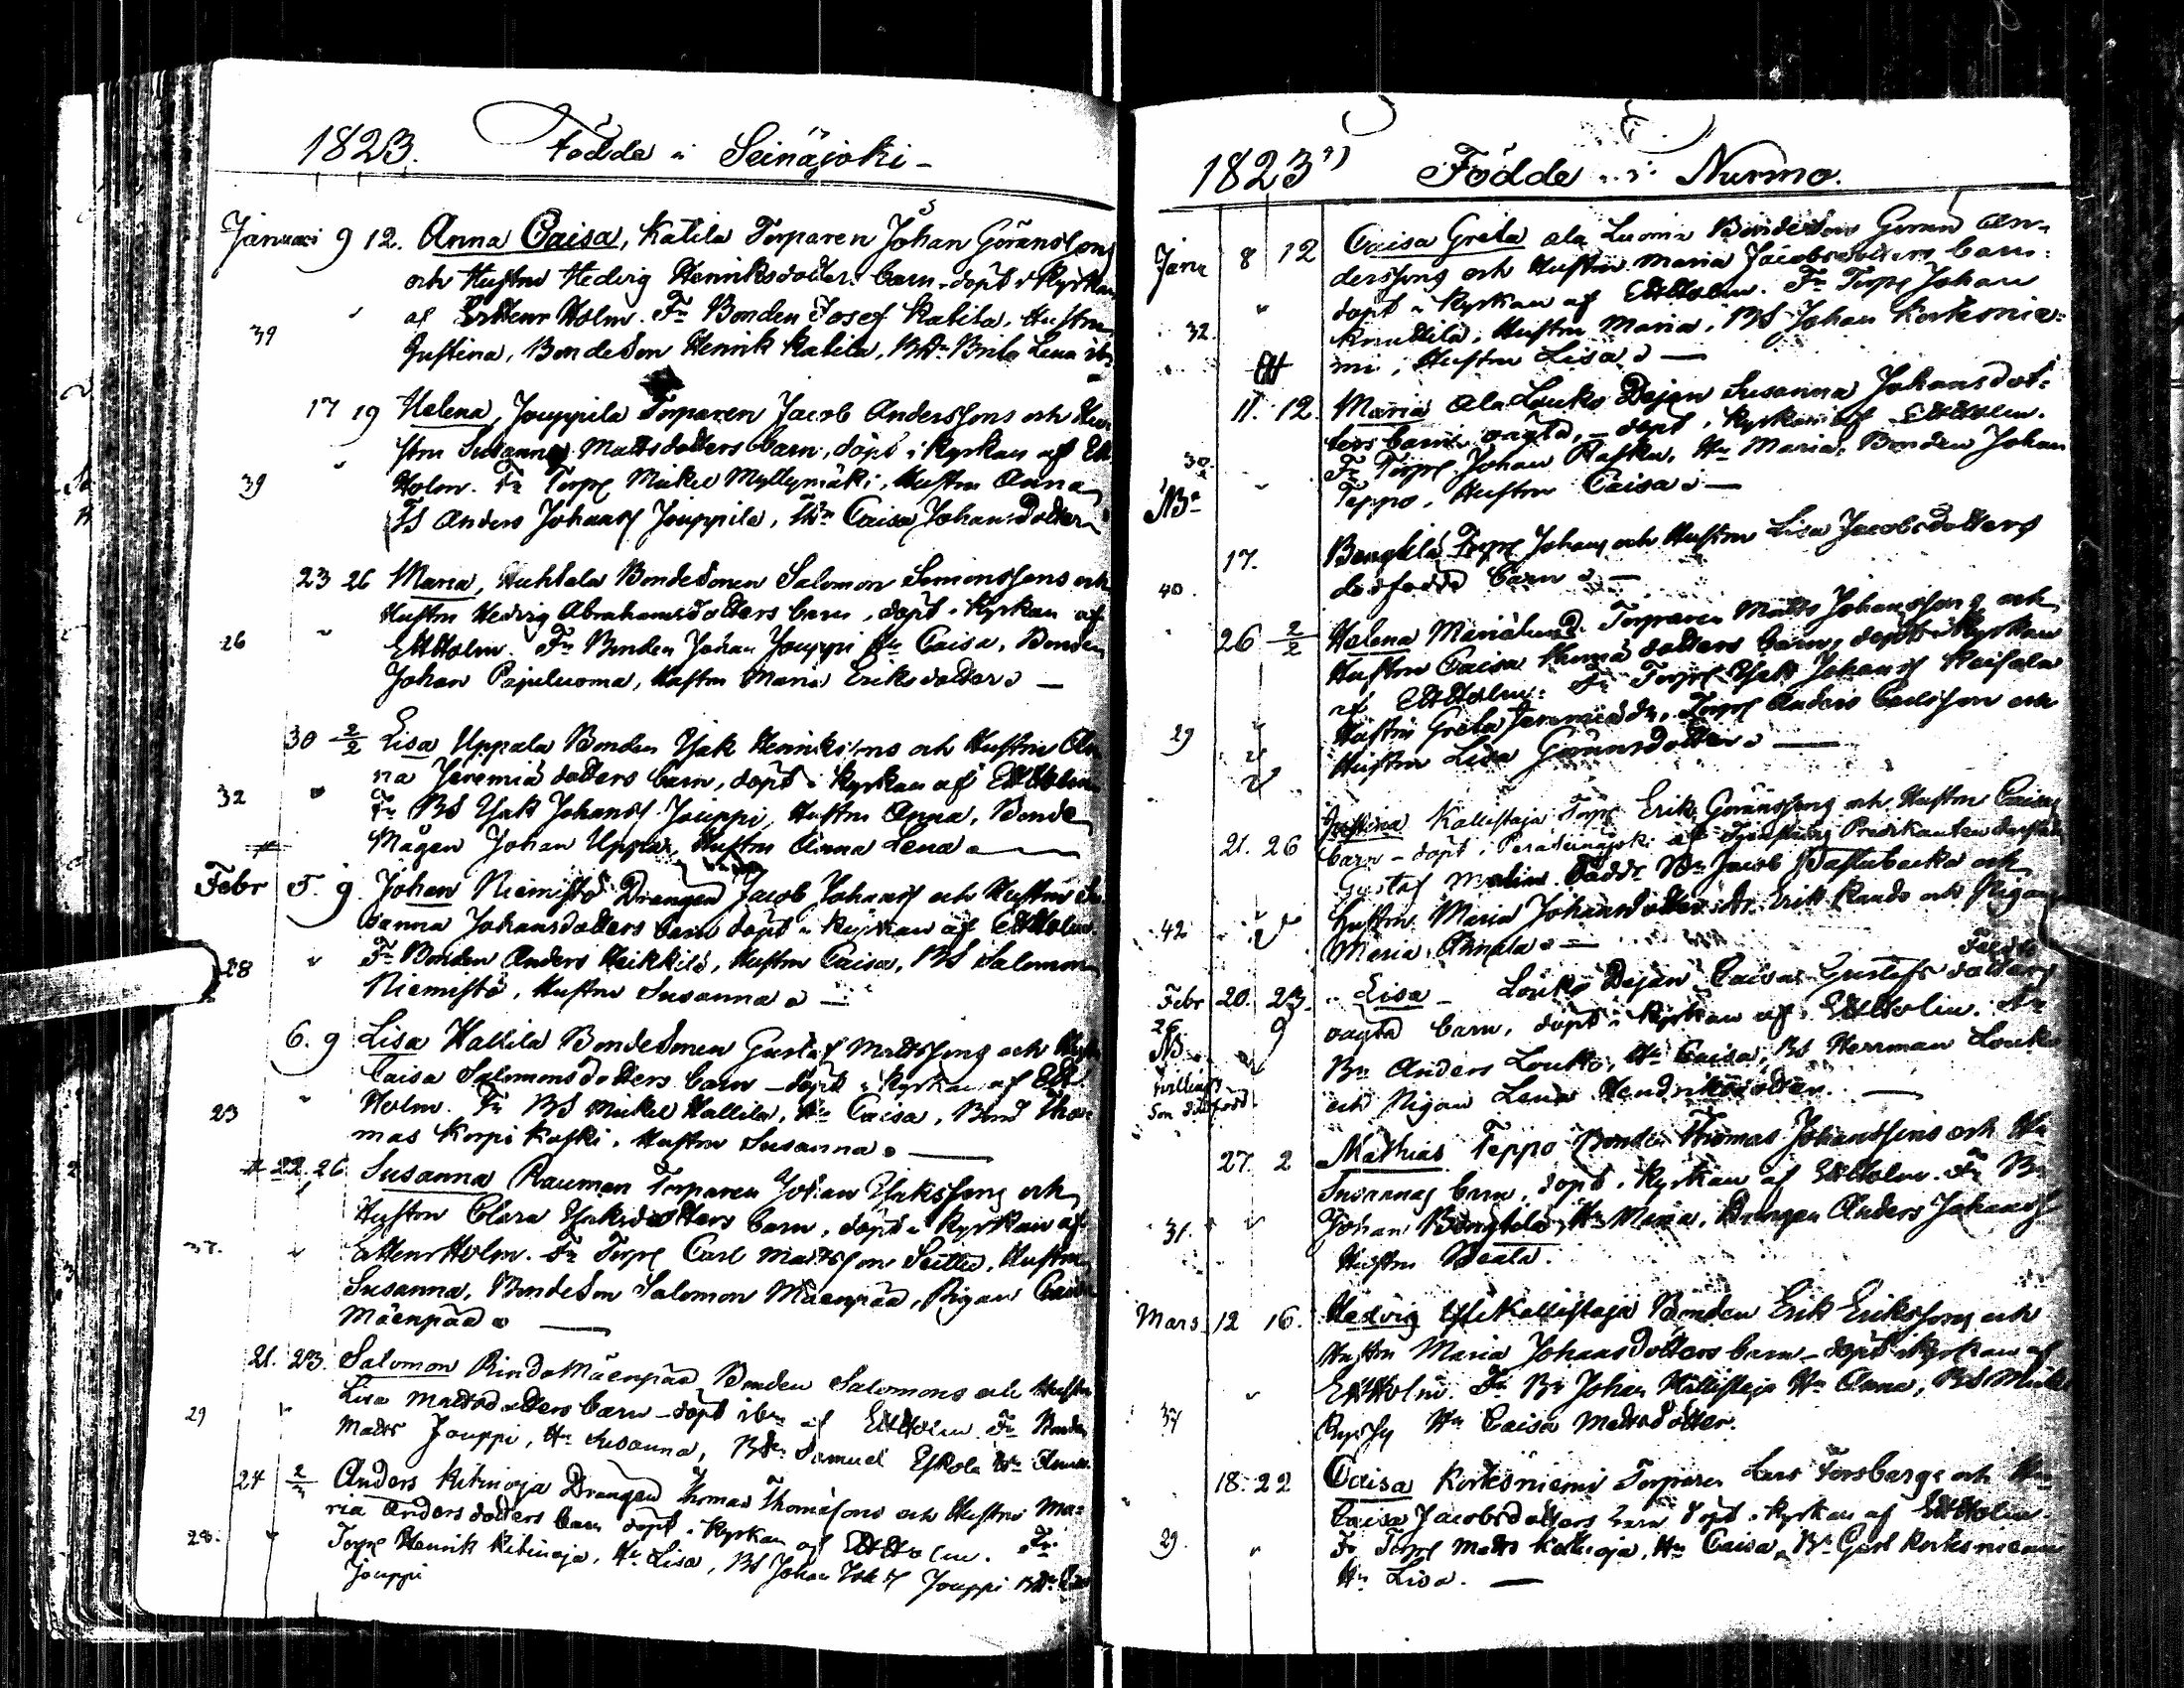 1823. Födde i Seinäjoki -
Januari 9 12. Anna Caisa, Katila Torparen Johan Göranssons
och Hustru Hedvig Henriksdotters barn, döpt i Kyrkan
af Ertienr Holm. Fr Bonden Josef Katila, Hustru
39 Justina, BondeSon Henrik Katila, BDr Brita Lena ibm
17 19 Helena, Jouppila Torparen Jacob Anderssons och Hu
stru Susanna Mattsdotters barn, döpt i Kyrkan af Ett
39 Holm. Fr Torp Mickel Myllymäki, Hustru Anna
TS Anders Johans Jouppila, Caisa Johansdotter
23 26 Maria, Huhtala BondeSonen Salomon Simonssons och
Hustru Hedvig Abrahamsdotters barn, döpt i Kyrkan af
26 EttHolm. Fr Bonden Johan Jouppi Hu Caisa, Bonden
Johan Pajuluoma, Hustru Maria Eriksdotter —
30 2/2 Lisa Uppala Bonden Isak Henrikssons och Hustru An
na Jeremiädotters barn, döpt i Kyrkan af EttHolm
32 Fr BS Isak Johans Jouppi, Hustru Anna, Bonde
Mågen Johan Uppa, Hustru Anna Lena —
Febr 5. 9. Johan Niemistö Drengen Jacob Johans och Hustru Su
sanna Johansdotters barn döpt i Kyrkan af EttHolm.
28 Fr Bonden Anders Heikkilä, Hustru Caisa, BS Salomon
Niemistö, Hustru Susanna —
6. 9 Lisa Hallila BondeSonen Gustaf Mattssons och
Caisa Salomonsdotters barn - döpt i Kyrkan af Ett
23 Holm. Fr BS Mickel Hallila, Hu Caisa, Bond Tho
mas Korpikoski, Hustru Susanna —
22. 26 Susanna Rauman Torparen Johan Isakssons och
Hustru Clara Isaksdotters barn, döpt i Kyrkan af
37. EttenrHolm. Fr Torp Carl Mattsson Hustru
Susanna, BondeSon Salomon Mäenpää, Pigan Caisa
Mäenpää —
21. 23. Salomon RindaMäenpää Bonden Salomons och Hustru
Lisa Mattsdotters barn - döpt ibm af EttHolm Fr Bonden
29 Matts Jouppi, Hu Susanna, Samuel Eskola Hu
24 2/ Anders Kitinoja Drengen Thomas Thomassons och Hustru Ma=
ria Andersdotters barn döpt i Kyrkan af EttHolm. Fr
28. Torp Henrik Kitinoja, Hu Lisa, BS Johan Jouppi
Jouppi
1823 Födde i Nurmo.
Janu 8 12 Caisa Greta ala Luoma Bondesons Göran An=
derssons och Hustru Maria Jacobsdotters barn:
döpt i Kyrkan af EttHolm. Fr Torp Johan
32. Knuttila, Hustru Maria, BS Johan Korkesnie=
mi, Hustru Lisa —
11. 12. Maria Ala Louko Dejan Susanna Johansdot=
ters barn oägta, - döpt i Kyrkan af EttHolm.
30. Fr Torp Johan Rasku, Hu Maria, Bonden Johan
NB Teppo, Hustru Caisa —
17. Bengtilä Torp Johans och Hustru Lisa Jacobsdotters
40. dödfödd barn —
26 2/2 Helena Torparen Matts Johanssons och
Hustru Caisa dotters barn, döpt i Kyrkan
af EttHolm. Fr Torp Isak Johans
29 Hustru Greta Jeremiädr, Torp Anders Carlsson och
Hustru Lisa Göransdotter —
Justina Kallistaja Torp Erik Göranssons och Hustru Caisas
21. 26 barn - döpt i Peräseinäjoki af Predikanten
Gustaf Malin. Fadd: Br Jacob och
42 hustru Maria Johansdotter Erik Rauds och Pigan
Maria Annala —
Febr 20. 23. Lisa - Louko Dejan Caisa Gustafs dotters
oägta barn, döpt i Kyrkan af EttHolm. Fr
NB Br Anders Louko, Hu Caisa, BS Herrman Louko
och Pigan Lena Hendriksdotter. —
27. 2 Mathias Teppo Bonden Thomas Johanssons och Hu
Susannas barn, döpt i Kyrkan af EttHolm. Fr Br
31. Johan Bengtilä, Hu Maria, Drengen Anders Johans
Hustru Beata.
Mars 12 16. Hedvig Kallistaja Bonden Erik Erikssons och
Hustru Maria Johansdotters barn - döpt i Kyrkan af
EttHolm. Fr Br Johan Kallistaja Hu Anna, BS
37 Hu Caisa Mattsdotter.
18. 22 Caisa Korkesniemi Torparen Lars Forsbergs och Hu
Caisa Jacobsdotters barn döpt i Kyrkan af EttHolm.
29. Fr Torp Matts Hu Caisa, Br Carl Korkesniemi
Hu Lisa. —